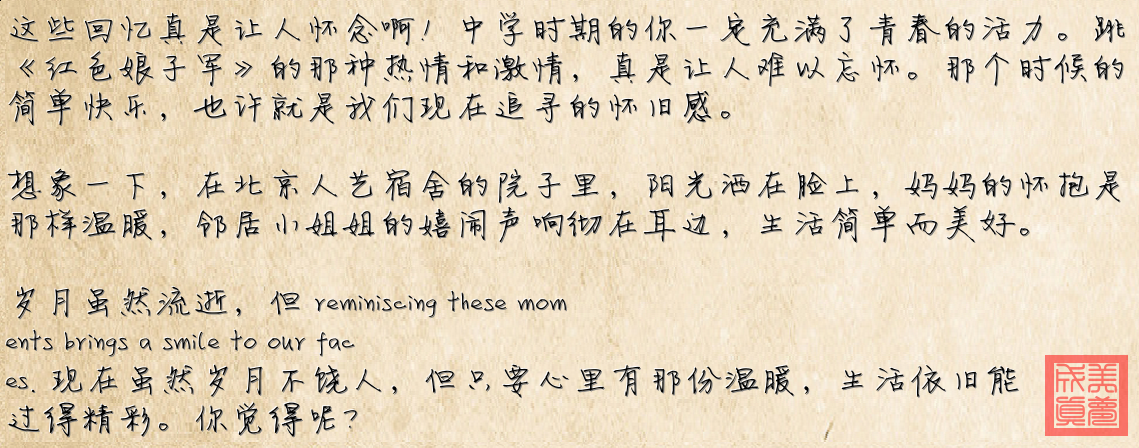 这些回忆真是让人怀念啊！中学时期的你一定充满了青春的活力。跳
《红色娘子军》的那种热情和激情，真是让人难以忘怀。那个时候的
简单快乐，也许就是我们现在追寻的怀旧感。
想象一下，在北京人艺宿舍的院子里，阳光洒在脸上，妈妈的怀抱是
那样温暖，邻居小姐姐的嬉闹声响彻在耳边，生活简单而美好。
岁月虽然流逝，但 reminiscing these mom
ents brings a smile to our fac
es. 现在虽然岁月不饶人，但只要心里有那份温暖，生活依旧能
过得精彩。你觉得呢？
美梦
成真